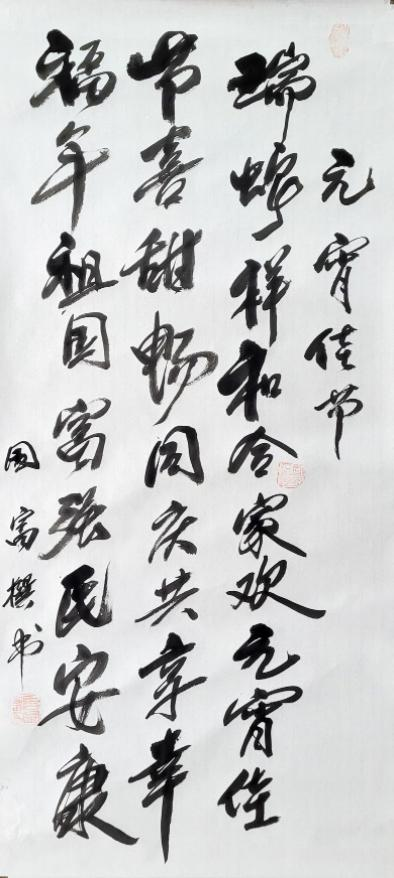 元宵佳节
瑞蛇祥和合家欢元宵佳
节喜甜畅同庆共享幸
福年祖国富强民安康
国富撰书